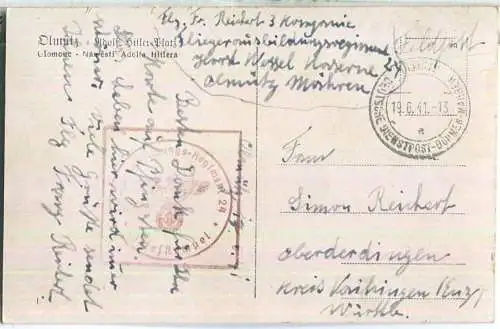 Olmütz - Adolf Hitler-Platz
Olomouc - Náměstí Adolfa Hitlera
Flg. Fr. Reichert 3 Kompanie
Fliegerausbildungsregiment 24
Horst Wessel Kaserne
Olmütz Mähren
Feldpost
DEUTSCHE DIENSTPOST BÖHMEN-MÄHREN
19.6.41.-13
a
Regiment 24
Olmütz
Besten Dank für Ihre
Karte auf Pfingsten.
Viele Grüße sendet
Ihnen Flg Franz Reichert
Simon Reichert
Oberderdingen
Kreis Vaihingen (Enz)
Württbg.